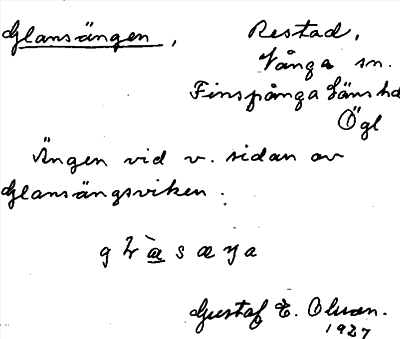 Glansängen, Restad,
Vånga sn.
Finspånga läns hd
Ögl
Ängen vid v. sidan av
Glansängsviken.
Gustaf E. Olson.
1927